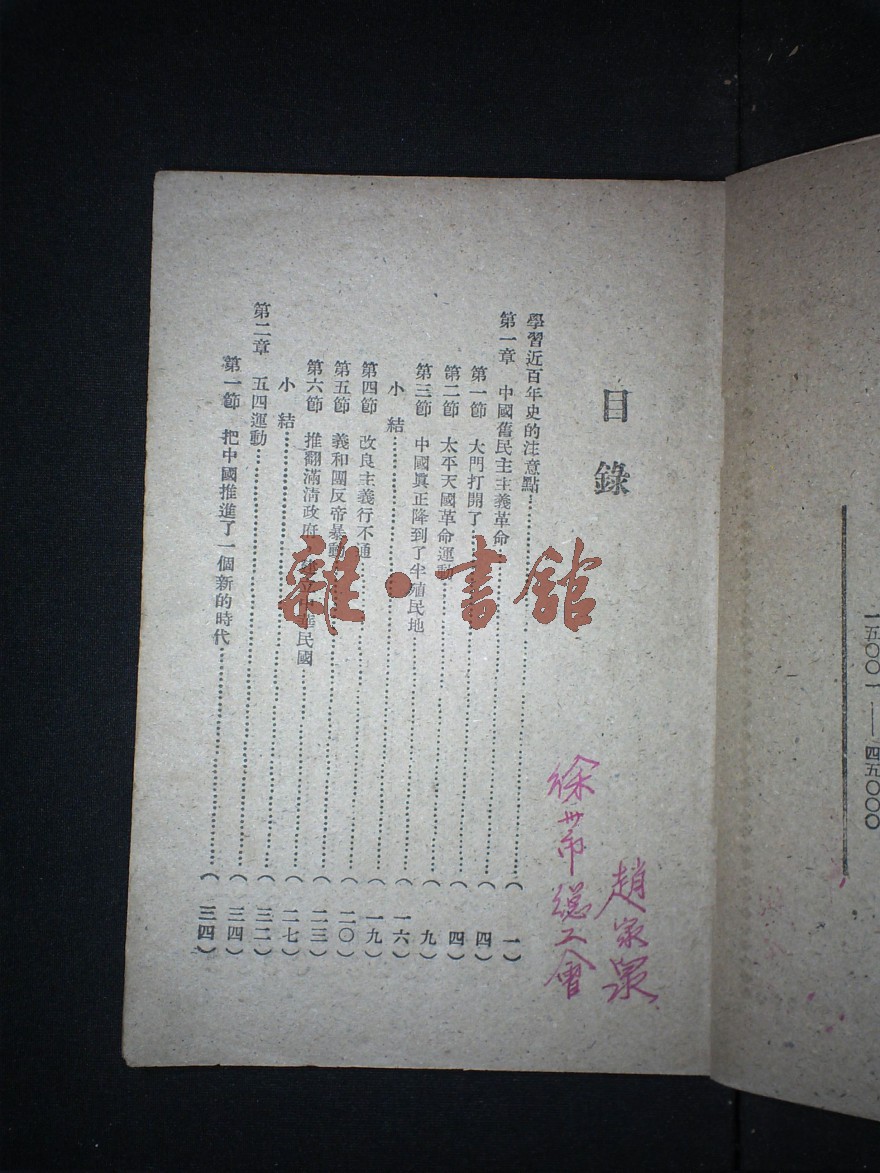 一五〇〇一——四五〇〇〇
目錄
學習近百年史的注意點……(一)
第一章 中國舊民主主義革命……(四)
第一節 大門打開了……(四)
第二節 太平天國革命運動……(九)
第三節 中國眞正降到了半殖民地……(一六)
小結……(一九)
第四節 改良主義行不通……(二〇)
第五節 義和團反帝暴動……(二三)
第六節 推翻滿清政府建立中華民國……(二七)
小結……(三二)
第二章 五四運動……(三四)
第一節 把中國推進了一個新的時代……(三四)
趙家
徐卅市總工會
雜·書館